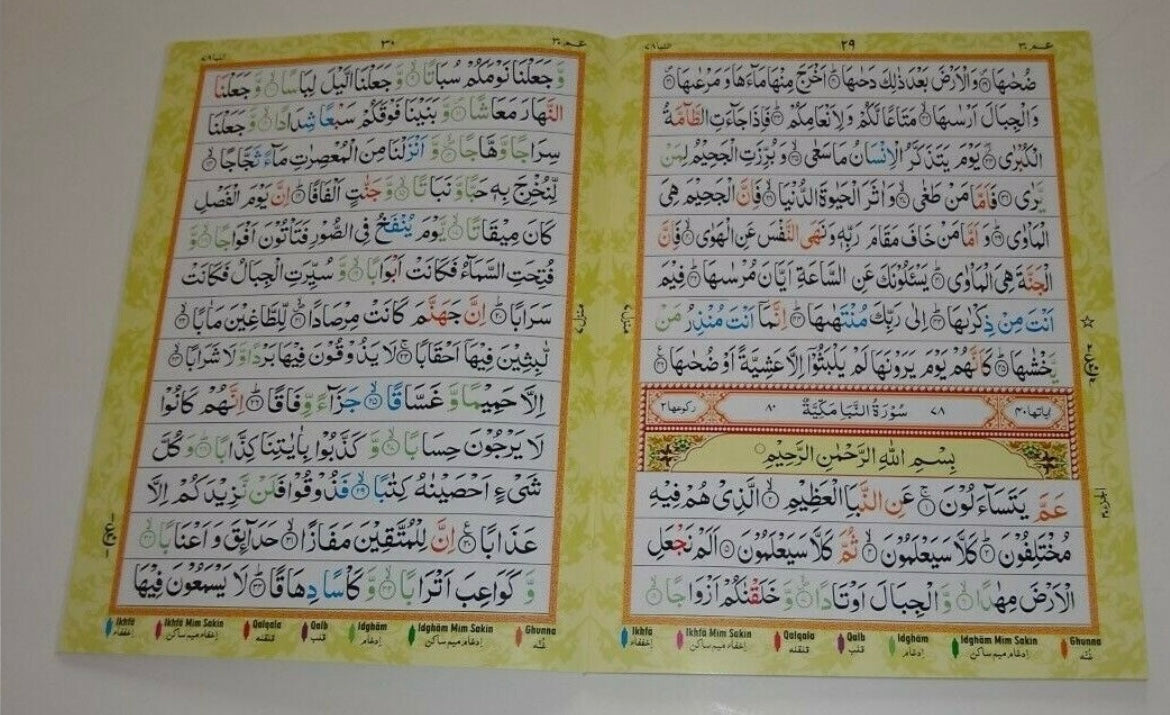 عم ٣٠
٢٩
النبا ٧٨
ضُحٰىهَا ۪ۙ وَالْاَرْضَ بَعْدَ ذٰلِكَ دَحٰىهَا ؕ اَخْرَجَ مِنْهَا مَآءَهَا وَمَرْعٰىهَا ۪
وَالْجِبَالَ اَرْسٰىهَا ۙ مَتَاعًا لَّكُمْ وَلِاَنْعَامِكُمْ ؕ فَاِذَا جَآءَتِ الطَّآمَّةُ
الْكُبْرٰى ۖ يَوْمَ يَتَذَكَّرُ الْاِنْسَانُ مَا سَعٰى ۙ وَبُرِّزَتِ الْجَحِيْمُ لِمَنْ
يَّرٰى ۝ فَاَمَّا مَنْ طَغٰى ۙ وَاٰثَرَ الْحَيٰوةَ الدُّنْيَا ۙ فَاِنَّ الْجَحِيْمَ هِىَ
الْمَاْوٰى ؕ وَاَمَّا مَنْ خَافَ مَقَامَ رَبِّهٖ وَنَهَى النَّفْسَ عَنِ الْهَوٰى ۙ فَاِنَّ
الْجَنَّةَ هِىَ الْمَاْوٰى ؕ يَسْئَلُوْنَكَ عَنِ السَّاعَةِ اَيَّانَ مُرْسٰىهَا ؕ فِيْمَ
اَنْتَ مِنْ ذِكْرٰىهَا ؕ اِلٰى رَبِّكَ مُنْتَهٰىهَا ؕ اِنَّمَآ اَنْتَ مُنْذِرُ مَنْ
يَّخْشٰىهَا ؕ كَاَنَّهُمْ يَوْمَ يَرَوْنَهَا لَمْ يَلْبَثُوْٓا اِلَّا عَشِيَّةً اَوْ ضُحٰىهَا ۝
اٰياتها ٤٠
٧٨ سُوْرَةُ النَّبَاِ مَكِّيَّةٌ ٨٠
ركوعها ٢
بِسْمِ اللّٰهِ الرَّحْمٰنِ الرَّحِيْمِ
عَمَّ يَتَسَآءَلُوْنَ ۚ عَنِ النَّبَاِ الْعَظِيْمِ ۙ الَّذِىْ هُمْ فِيْهِ
مُخْتَلِفُوْنَ ؕ كَلَّا سَيَعْلَمُوْنَ ۙ ثُمَّ كَلَّا سَيَعْلَمُوْنَ ۝ اَلَمْ نَجْعَلِ
الْاَرْضَ مِهٰدًا ۙ وَّالْجِبَالَ اَوْتَادًا ۪ وَّخَلَقْنٰكُمْ اَزْوَاجًا ۙ
Ikhfa Ikhfā Mim Sakin Qalqala Qalb Idghām Idghām Mim Sakin Ghunna
إخفاء إخفاء ميم ساكن قلقله قلب إدغام إدغام ميم ساكن غنّه
عم ٣٠
٣٠
النبا ٧٨
وَّجَعَلْنَا نَوْمَكُمْ سُبَاتًا ۙ وَّجَعَلْنَا الَّيْلَ لِبَاسًا ۙ وَّجَعَلْنَا
النَّهَارَ مَعَاشًا ۪ وَّبَنَيْنَا فَوْقَكُمْ سَبْعًا شِدَادًا ۙ وَّجَعَلْنَا
سِرَاجًا وَّهَّاجًا ۪ وَّاَنْزَلْنَا مِنَ الْمُعْصِرٰتِ مَآءً ثَجَّاجًا ۙ
لِّنُخْرِجَ بِهٖ حَبًّا وَّنَبَاتًا ۙ وَّجَنّٰتٍ اَلْفَافًا ؕ اِنَّ يَوْمَ الْفَصْلِ
كَانَ مِيْقَاتًا ۙ يَّوْمَ يُنْفَخُ فِى الصُّوْرِ فَتَاْتُوْنَ اَفْوَاجًا ۙ وَّ
فُتِحَتِ السَّمَآءُ فَكَانَتْ اَبْوَابًا ۙ وَّسُيِّرَتِ الْجِبَالُ فَكَانَتْ
سَرَابًا ؕ اِنَّ جَهَنَّمَ كَانَتْ مِرْصَادًا ۪ۙ لِّلطَّاغِيْنَ مَاٰبًا ۙ
لّٰبِثِيْنَ فِيْهَآ اَحْقَابًا ۚ لَا يَذُوْقُوْنَ فِيْهَا بَرْدًا وَّلَا شَرَابًا ۙ
اِلَّا حَمِيْمًا وَّغَسَّاقًا ۙ جَزَآءً وِّفَاقًا ؕ اِنَّهُمْ كَانُوْا
لَا يَرْجُوْنَ حِسَابًا ۙ وَّكَذَّبُوْا بِاٰيٰتِنَا كِذَّابًا ؕ وَكُلَّ
شَىْءٍ اَحْصَيْنٰهُ كِتٰبًا ۙ فَذُوْقُوْا فَلَنْ نَّزِيْدَكُمْ اِلَّا
عَذَابًا ۝ اِنَّ لِلْمُتَّقِيْنَ مَفَازًا ۙ حَدَآئِقَ وَاَعْنَابًا ۙ
وَّكَوَاعِبَ اَتْرَابًا ۙ وَّكَاْسًا دِهَاقًا ؕ لَا يَسْمَعُوْنَ فِيْهَا
Ikhfa Ikhfā Mim Sakin Qalqala Qalb Idghām Idghām Mim Sakin Ghunna
إخفاء إخفاء ميم ساكن قلقله قلب إدغام إدغام ميم ساكن غنّه